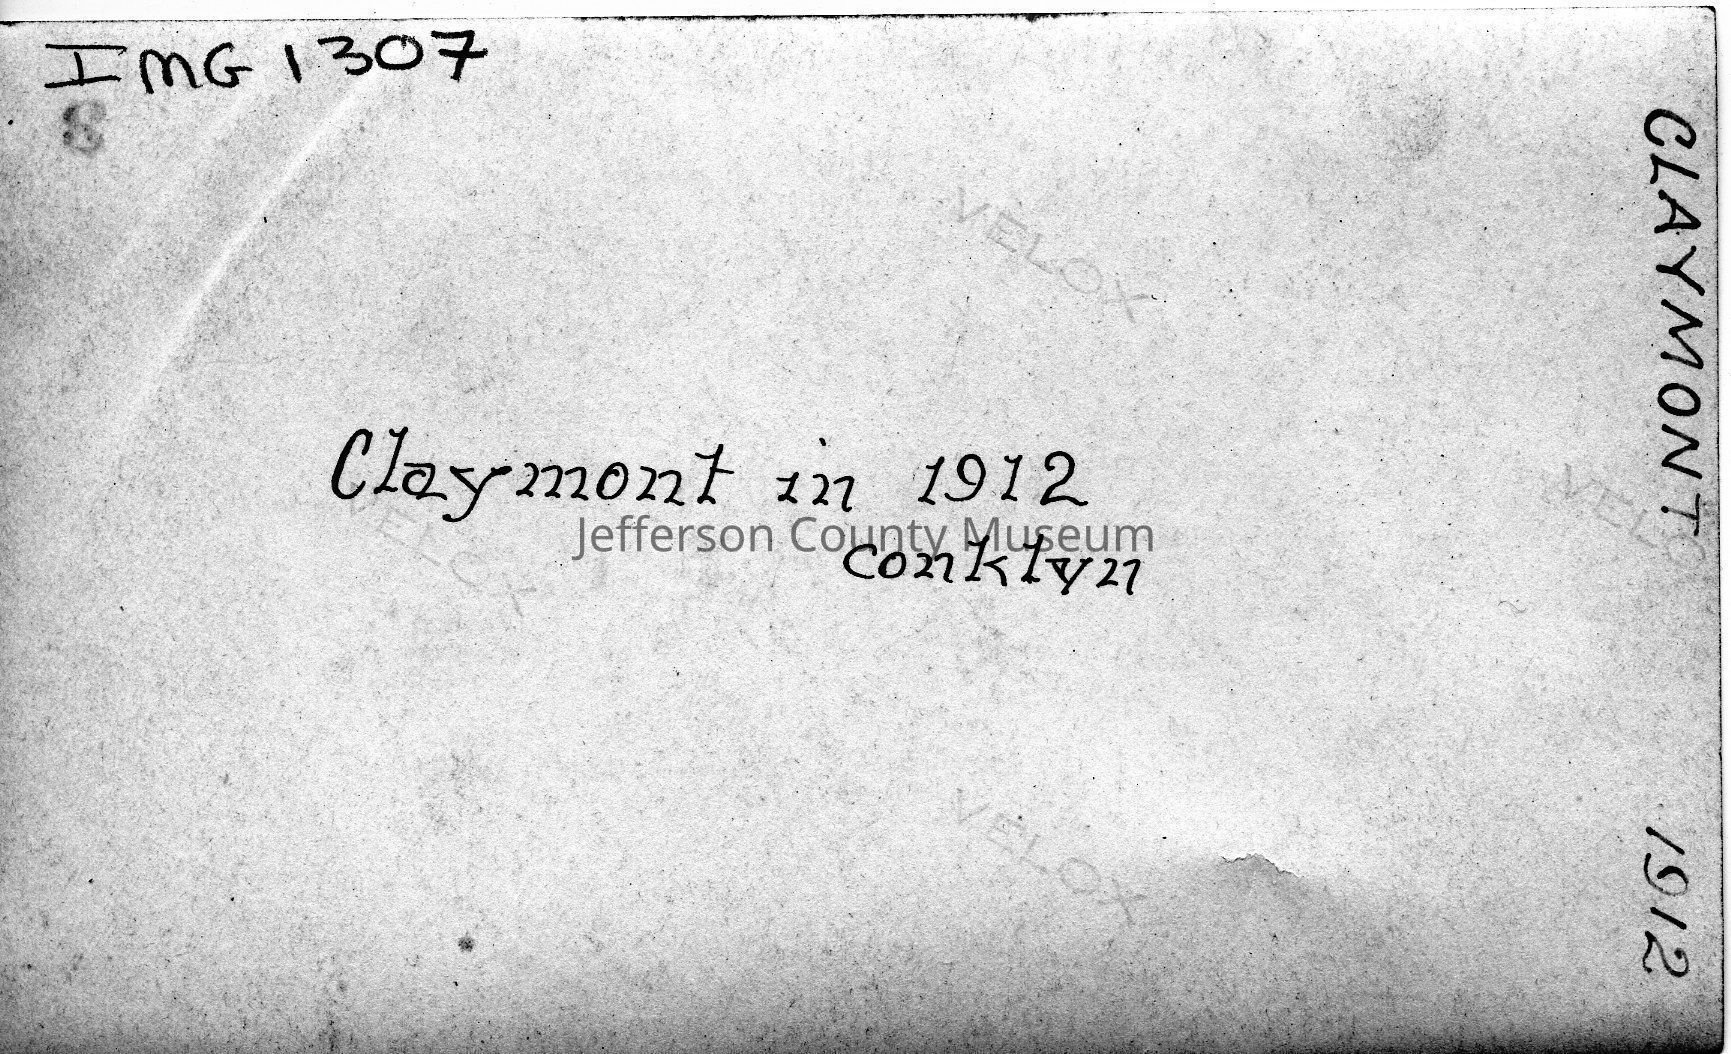 IMG 1307
8
VELOX
Claymont in 1912
Jefferson County Museum
conklyn
VELOX
VELOX
VELOX
CLAYMONT 1912